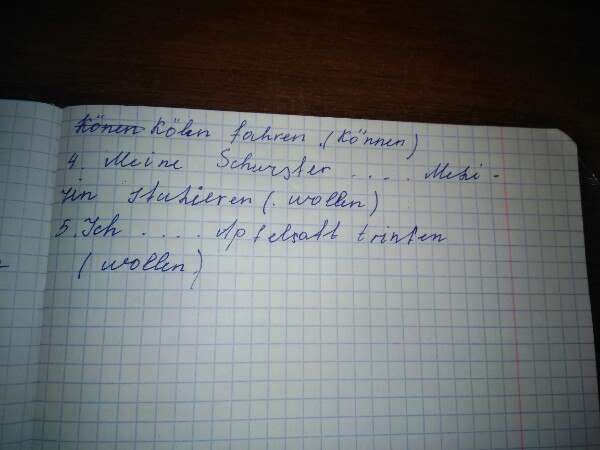 Köln fahren. (können)
4. Meine Schwester .... Medi-
zin studieren (. wollen)
5. Ich .... Apfelsaft trinken
(wollen)